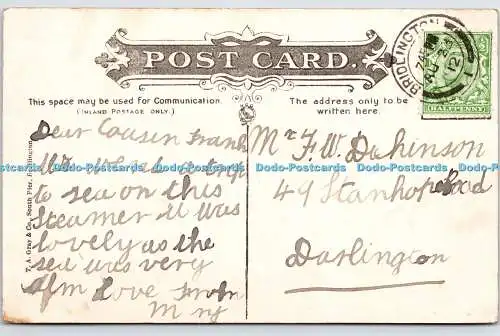 POST CARD.
This space may be used for Communication.
(INLAND POSTAGE ONLY.)
The address only to be
written here.
BRIDLINGTON
12
HALFPENNY
T. A. Gray & Co., South Pier, Bridlington.
Dear Cousin Frank
to sea on this
Steamer it was
lovely as the
sea was very
love from
Mr F. W. Dickinson
49 Stanhope Road
Darlington
Dodo-Postcards Dodo-Postcards Dodo-Postcards Dodo-Postcards